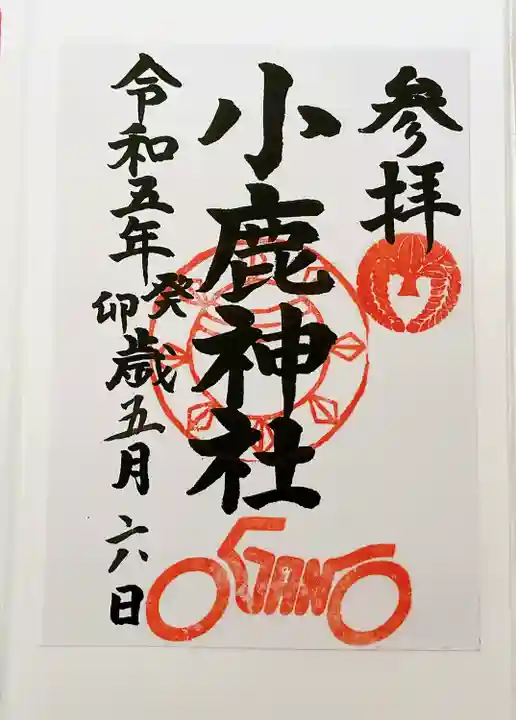 参拝
小鹿神社
令和五年癸卯歳五月六日
OGANO